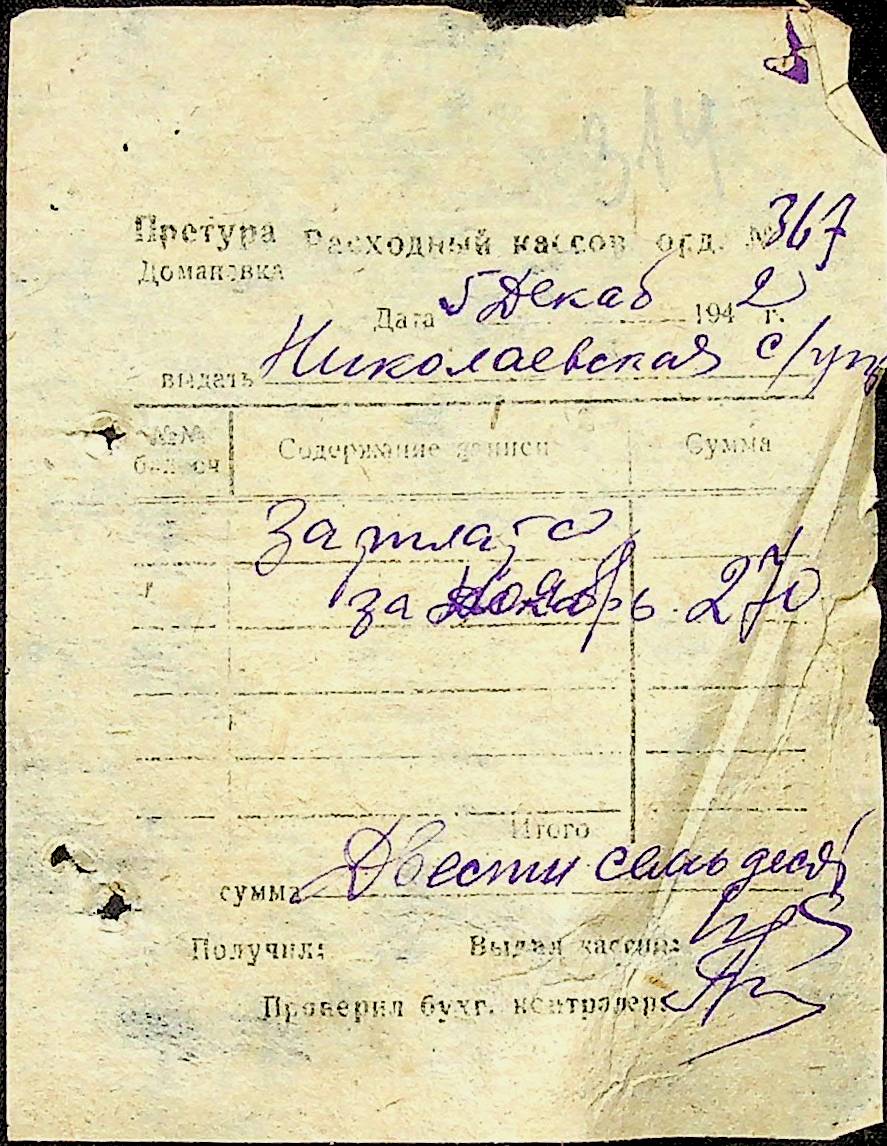 314
Претура Расходный кассов. орд. № 367
Домановка
Дата 5 Декаб 1942 г.
выдать Николаевская с/упр
№№ Содержание записи Сумма
Зарплата
за Ноябрь. 270
Итого
сумма Двести семьдесят
Получил: Выдал кассир:
Проверил бухг. контралер: